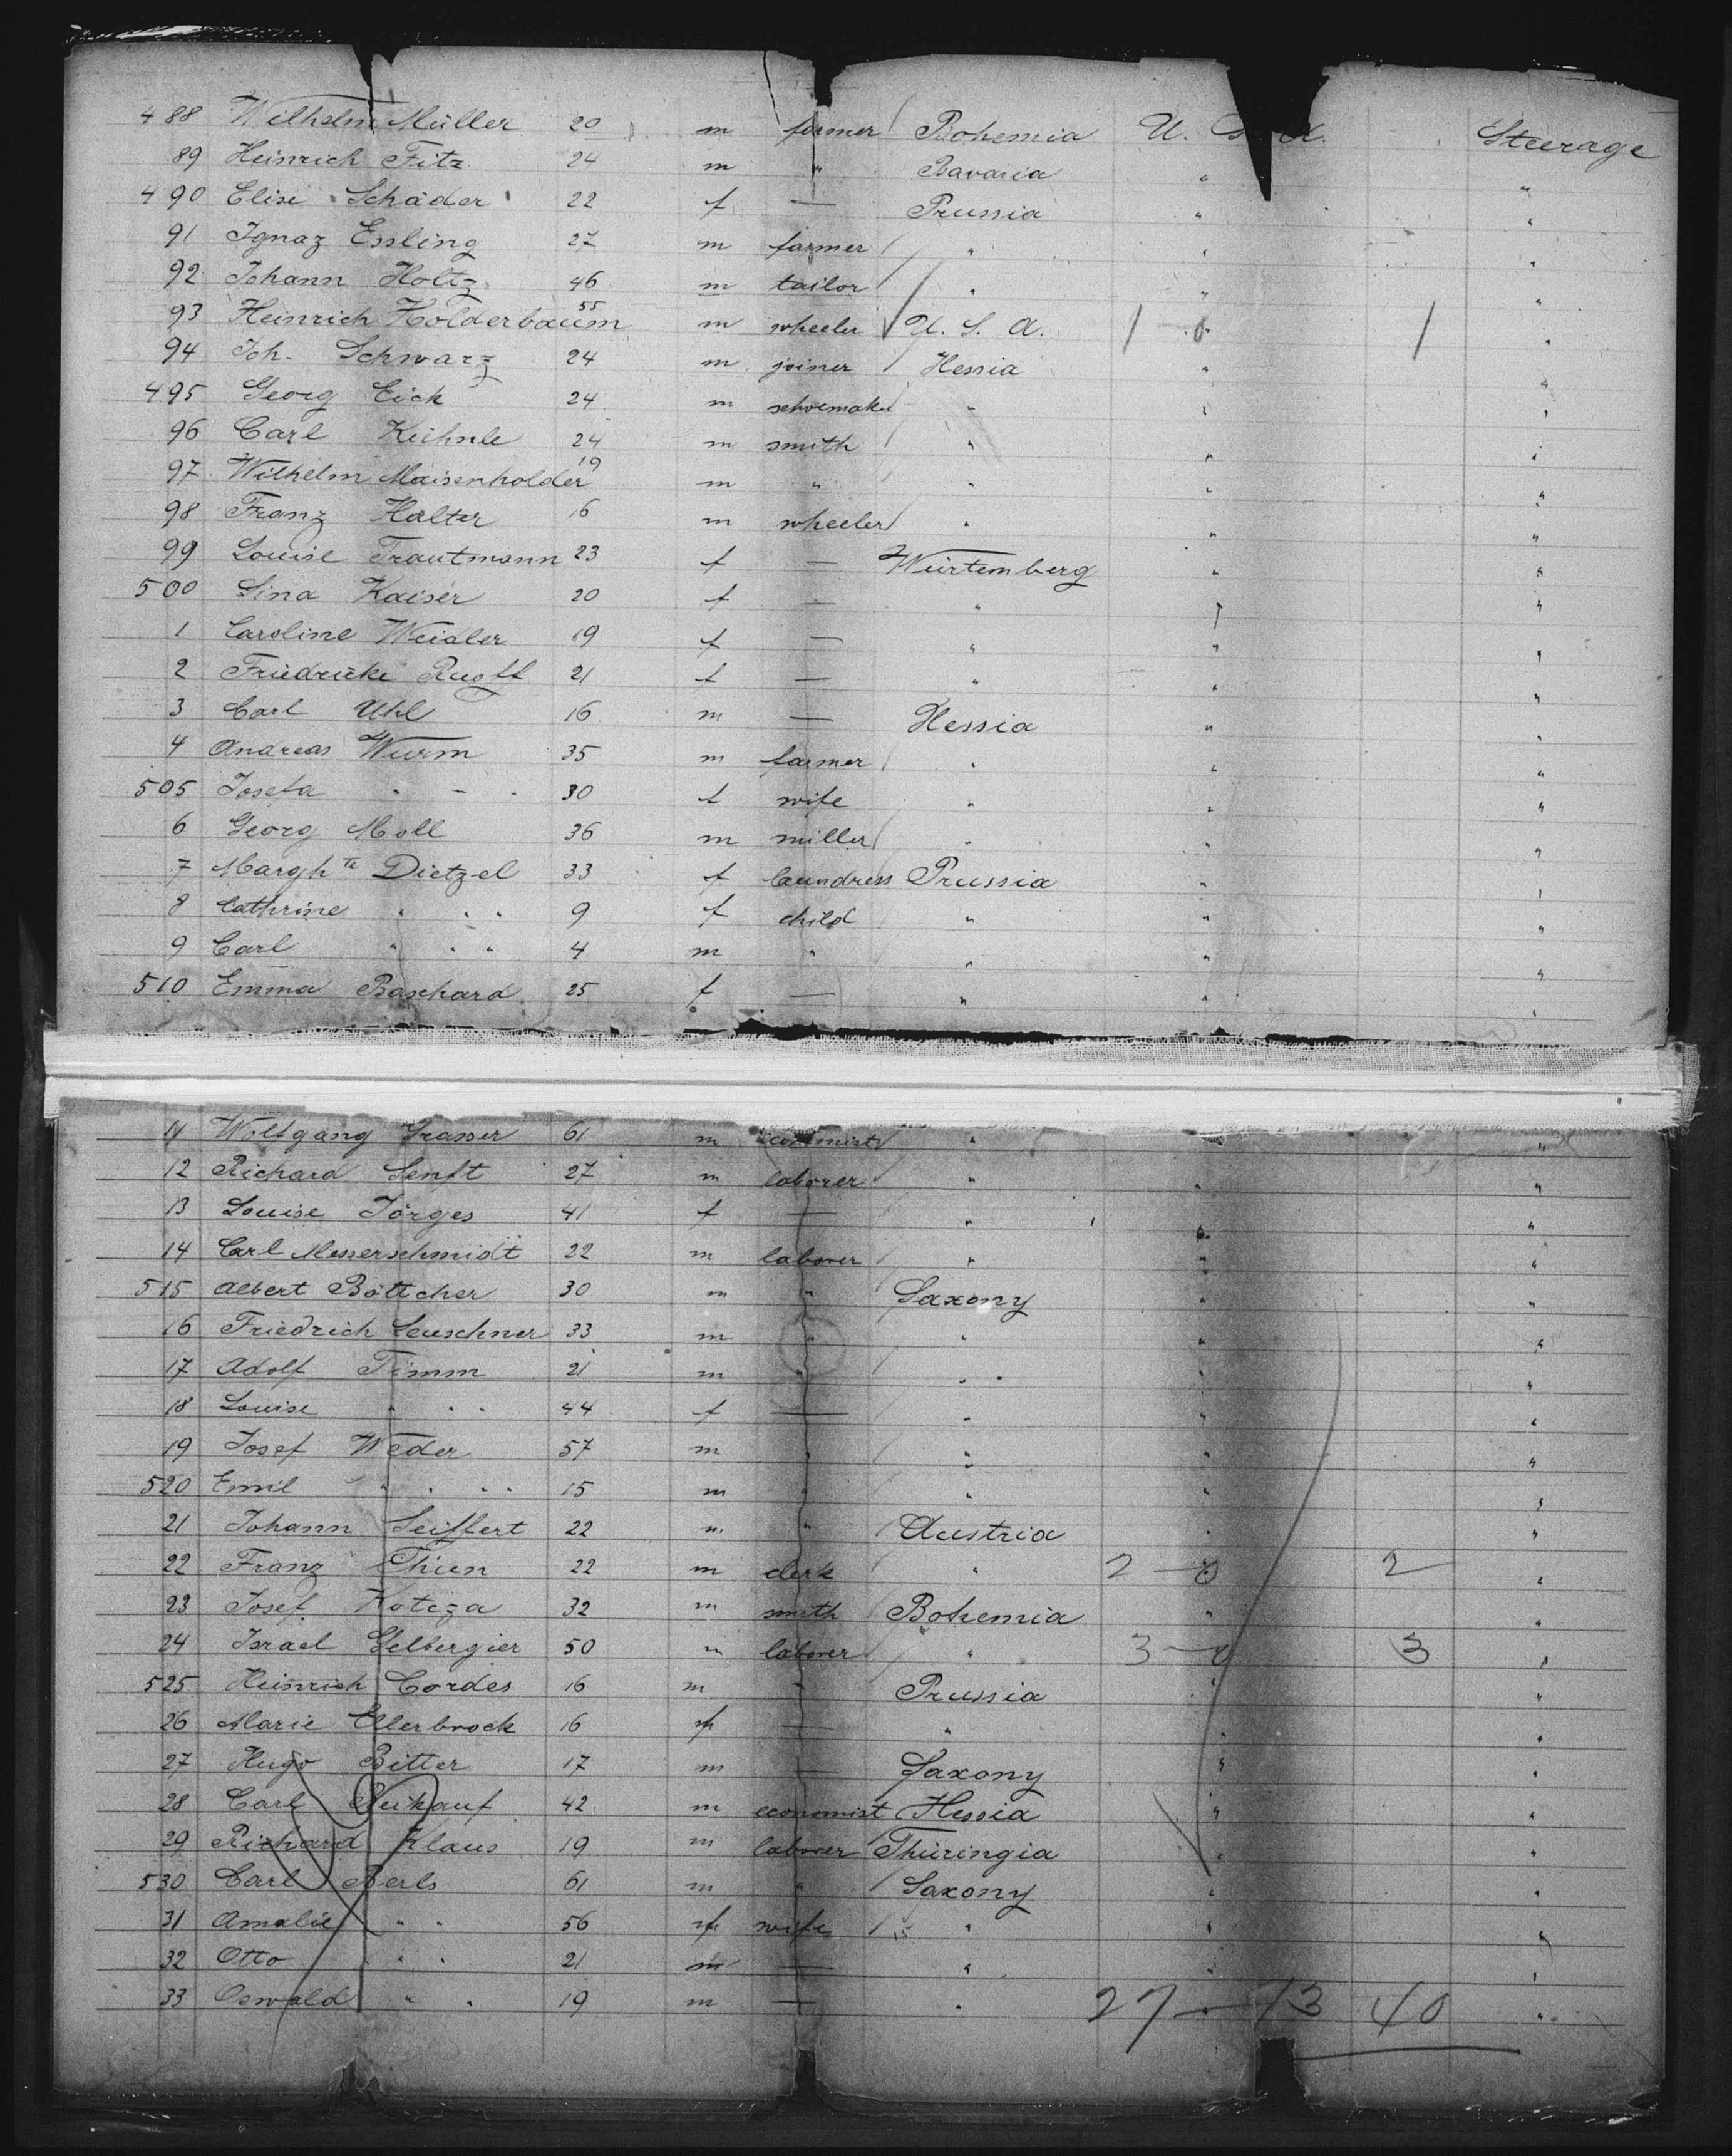 488 Wilhelm Müller 20 m farmer Bohemia U. S. A. Steerage
89 Heinrich Fitz 24 m " Bavaria " "
490 Elise Schäder 22 f — Prussia " "
91 Ignaz Essling 27 m farmer " " "
92 Johann Holtz 46 m tailor " " "
93 Heinrich Holderbaum 55 m wheeler U. S. A. 1 " 1 "
94 Joh. Schwarz 24 m joiner Hessia " "
495 Georg Eick 24 m schoemaker " " "
96 Carl Kühnle 24 m smith " " "
97 Wilhelm Maisenholder 19 m " " " "
98 Franz Halter 16 m wheeler " " "
99 Louise Trautmann 23 f — Würtemberg " "
500 Lina Kaiser 20 f — " " "
1 Caroline Weidler 19 f — " " "
2 Friedricke Ruoff 21 f — " " "
3 Carl Uhl 16 m — Hessia " "
4 Andreas Wurm 35 m farmer " " "
505 Josefa " " " 30 f wife " " "
6 Georg Moll 36 m miller " " "
7 Marghte Dietzel 33 f laundress Prussia " "
8 Cathrine " " " 9 f child " " "
9 Carl " " " 4 m " " " "
510 Emma Baschard 25 f — " " "
11 Wolfgang Grasser 61 m economist " " "
12 Richard Senft 27 m laborer " " "
13 Louise Jörges 41 f — " " "
14 Carl Messerschmidt 22 m laborer " " "
515 Albert Böttcher 30 m " Saxony " "
16 Friedrich Leuschner 33 m " " " "
17 Adolf Timm 21 m " " " "
18 Louise " " " 44 f — " " "
19 Josef Weder 57 m " " " "
520 Emil " " " " 15 m " " " "
21 Johann Seiffert 22 m " Austria " "
22 Franz Thien 22 m clerk " 2 — 0 2 "
23 Josef Koteza 32 m smith Bohemia " "
24 Israel Gelbergier 50 m laborer " 3 — 0 3 "
525 Heinrich Cordes 16 m — Prussia " "
26 Marie Ellerbrock 16 f — " " "
27 Hugo Bitter 17 m — Saxony " "
28 Carl Leikauf 42 m economist Hessia " "
29 Richard Klaus 19 m laborer Thüringia " "
530 Carl Berls 61 m " Saxony " "
31 Amalie " " 56 f wife " " "
32 Otto " " 21 m — " " "
33 Oswald " " 19 m — " 27 — 13 40 "